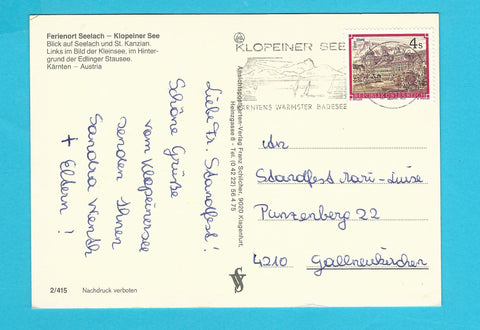 Ferienort Seelach – Klopeiner See
Blick auf Seelach und St. Kanzian.
Links im Bild der Kleinsee, im Hinter-
grund der Edlinger Stausee.
Kärnten – Austria
Liebe Fr. Standfest!
Schöne Grüße
vom Klopeinersee
senden Ihnen
Sandra
+ Eltern!
2/415
Nachdruck verboten
Ansichtspostkarten-Verlag Franz Schilcher, 9020 Klagenfurt,
Heinzgasse 8 - Tel. (0 42 22) 56 4 75
KLOPEINER SEE
KÄRNTENS WÄRMSTER BADESEE
4 S
REPUBLIK ÖSTERREICH
An
Standfest Mari-Luise
Punzenberg 22
4210 Gallneukirchen